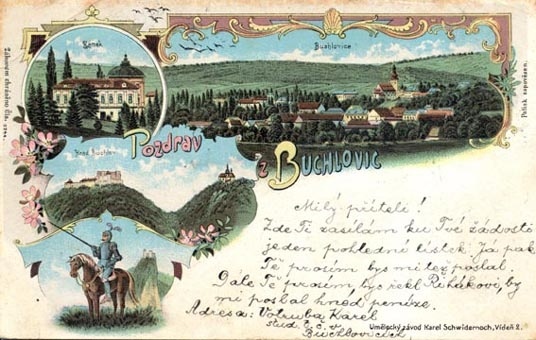 Zámek
Buchlovice
Pozdrav
z Buchlovic
Hrad Buchlov
Zákonem chráněno čís.
Potisk zapovězen.
Milý příteli!
Zde Ti zasílám ku Tvé žádosti
jeden pohlední lístek. Já pak
Tě prosím bys mi též poslal
Dále Tě prosím, bys řekl Řihákovi, by
mi poslal hned peníze.
Adresa: Votruba Karel
stud.
Buchlovicích
Umělecký závod Karel Schwidernoch, Vídeň 2.